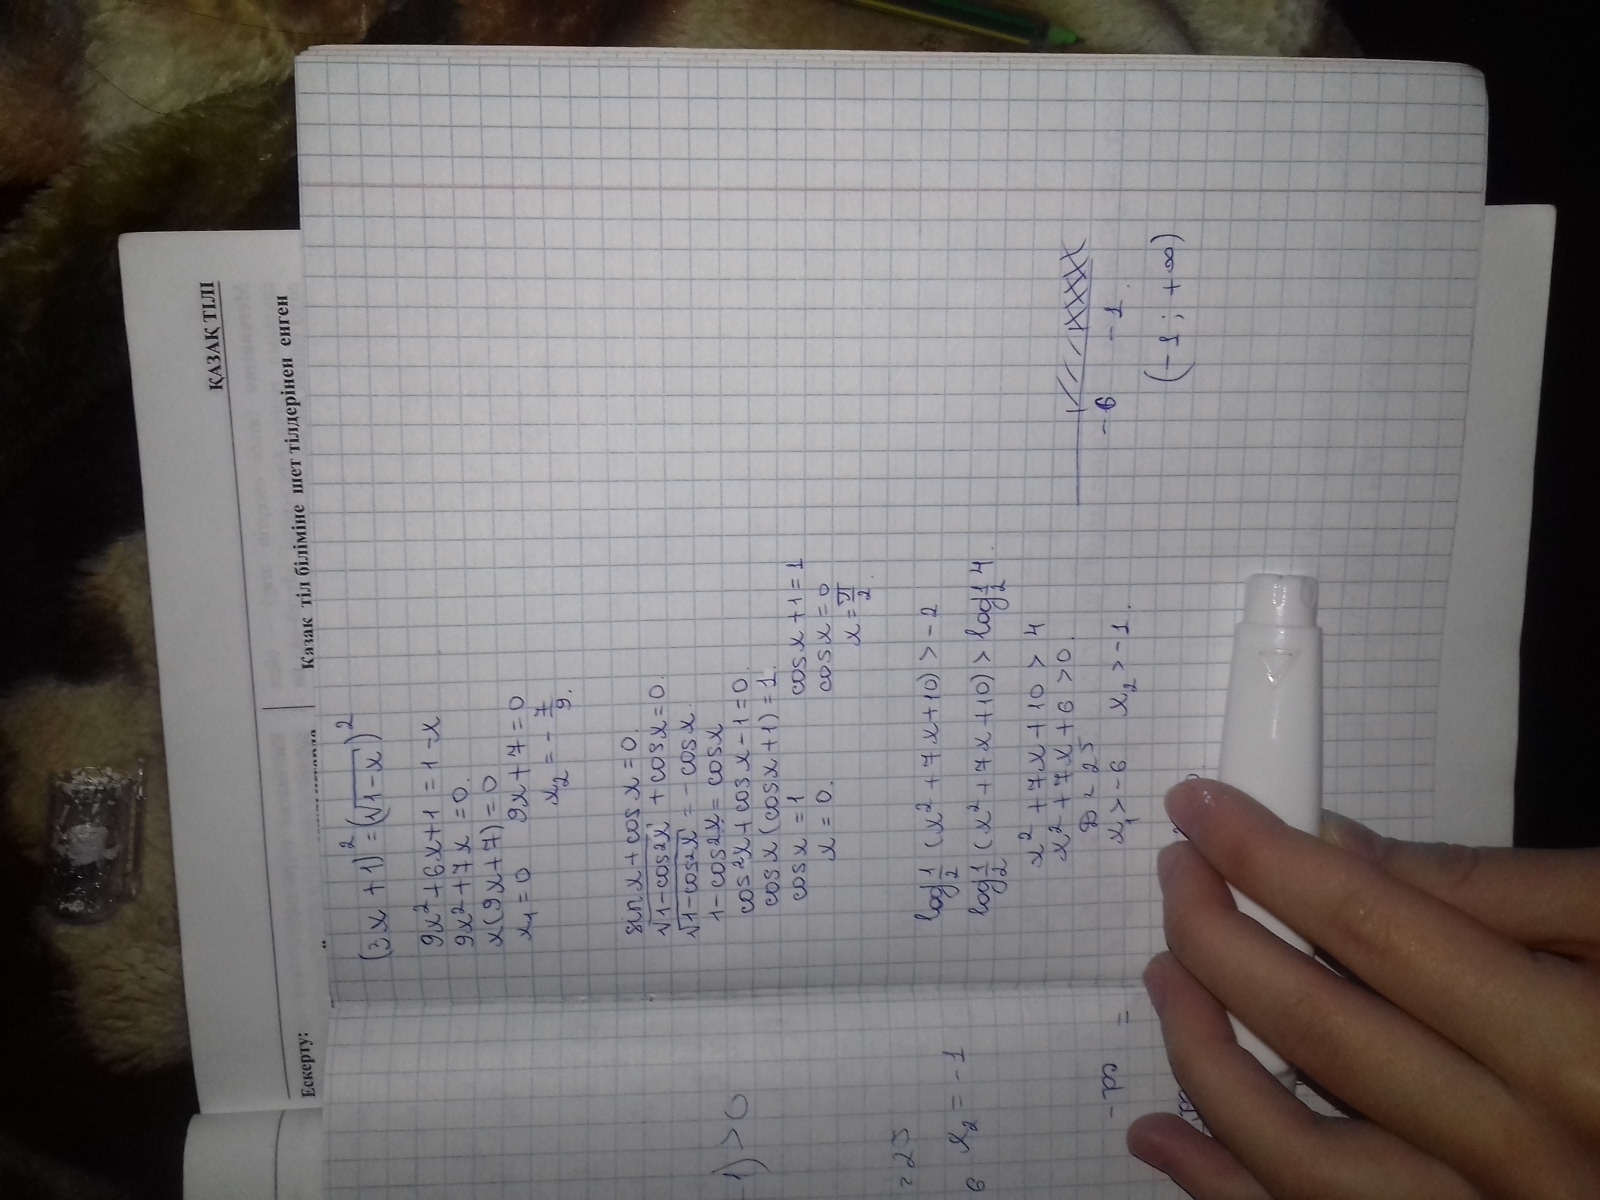 ҚАЗАҚ ТІЛІ
Қазақ тіл біліміне шет тілдерінен енген
Ескерту:
(3x + 1)² = (√1-x)²
9x² + 6x + 1 = 1 - x
9x² + 7x = 0.
x(9x + 7) = 0
x₁ = 0 9x + 7 = 0
x₂ = - 7/9.
sin x + cos x = 0.
√1-cos²x + cos x = 0.
√1-cos²x = - cos x.
1 - cos²x = cos x
cos²x + cos x - 1 = 0.
cos x (cos x + 1) = 1.
cos x = 1 cos x + 1 = 1
x = 0. cos x = 0
x = π/2.
log 1/2 (x² + 7x + 10) > - 2
log 1/2 (x² + 7x + 10) > log 1/2 4.
x² + 7x + 10 > 4
x² + 7x + 6 > 0.
D = 25
x₁ > - 6 x₂ > - 1.
- 6 - 1.
(- 1 ; + ∞)
1) > 0
= 25
6 x₂ = - 1